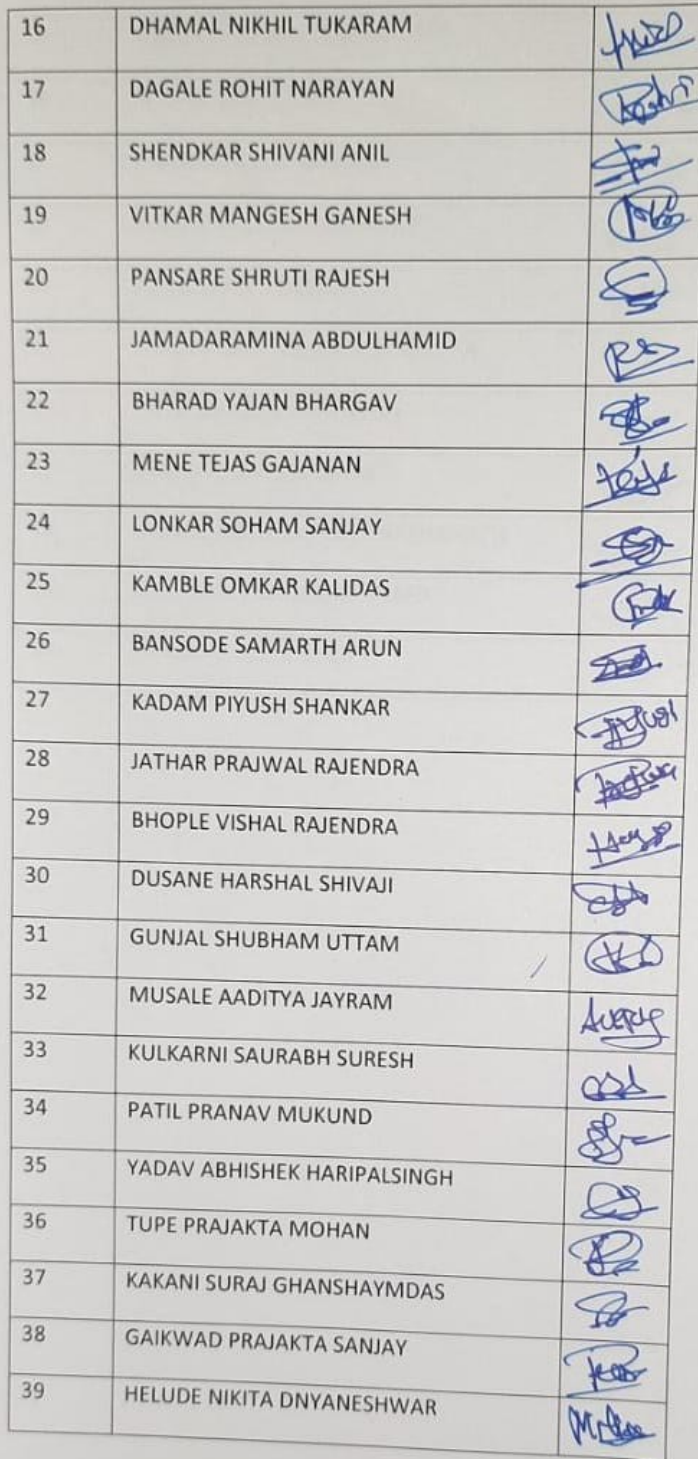 16 DHAMAL NIKHIL TUKARAM
17 DAGALE ROHIT NARAYAN
18 SHENDKAR SHIVANI ANIL
19 VITKAR MANGESH GANESH
20 PANSARE SHRUTI RAJESH
21 JAMADARAMINA ABDULHAMID
22 BHARAD YAJAN BHARGAV
23 MENE TEJAS GAJANAN
24 LONKAR SOHAM SANJAY
25 KAMBLE OMKAR KALIDAS
26 BANSODE SAMARTH ARUN
27 KADAM PIYUSH SHANKAR
28 JATHAR PRAJWAL RAJENDRA
29 BHOPLE VISHAL RAJENDRA
30 DUSANE HARSHAL SHIVAJI
31 GUNJAL SHUBHAM UTTAM
32 MUSALE AADITYA JAYRAM
33 KULKARNI SAURABH SURESH
34 PATIL PRANAV MUKUND
35 YADAV ABHISHEK HARIPALSINGH
36 TUPE PRAJAKTA MOHAN
37 KAKANI SURAJ GHANSHAYMDAS
38 GAIKWAD PRAJAKTA SANJAY
39 HELUDE NIKITA DNYANESHWAR